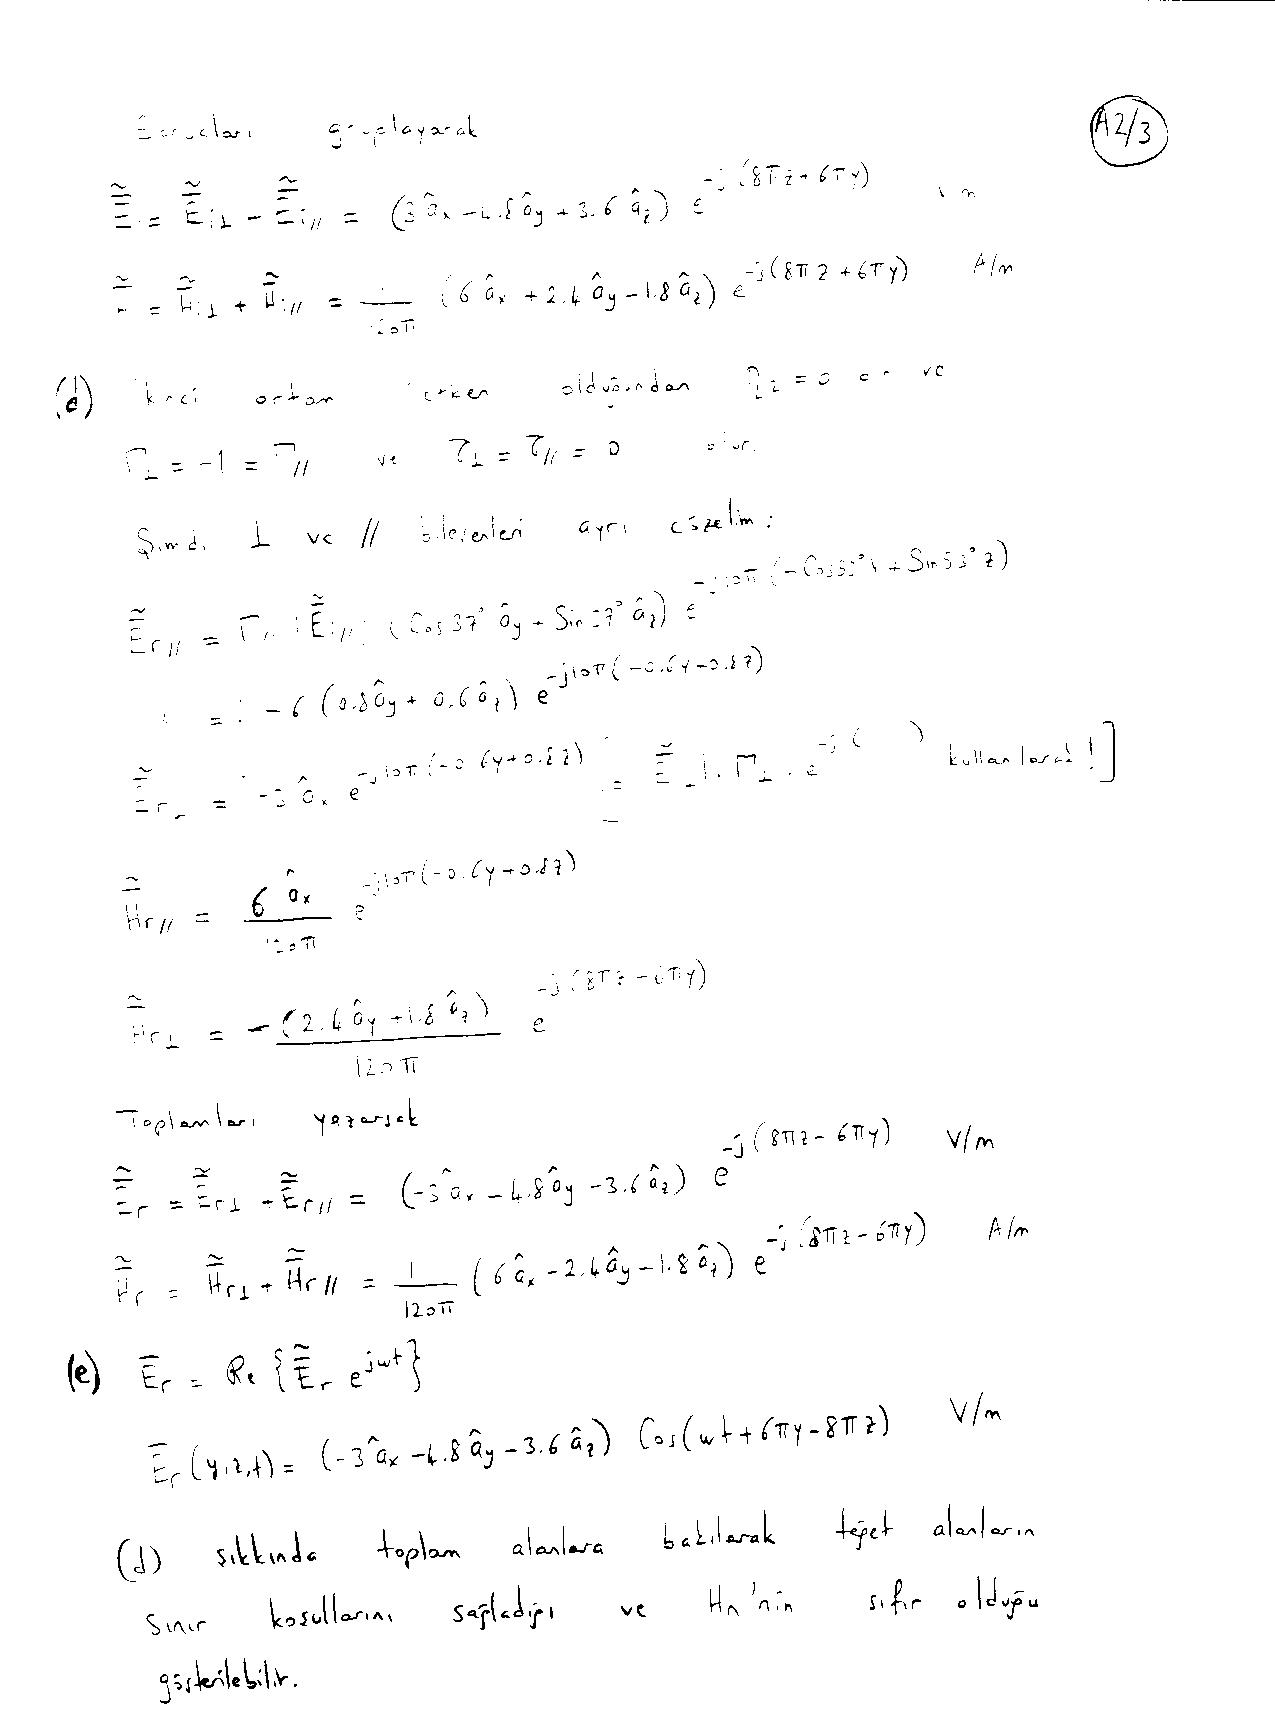 A2/3
gruplayarak
= Ẽi⊥ - Ẽi// = (3âx - 4.8ây + 3.6âz) e^{-j(8πz+6πy)}
= H̃i⊥ + H̃i// = 1/120π (6âx + 2.4ây - 1.8âz) e^{-j(8πz+6πy)} A/m
(d) ortam olduğundan η2 = 0 ve
Γ⊥ = -1 = Γ// ve τ⊥ = τ// = 0 olur.
Şimdi ⊥ ve // bileşenleri ayrı çözelim:
Ẽr// = (Cos37° ây + Sin37° âz) e
= -6 (0.8ây + 0.6âz) e^{-j10π(-0.6y-0.8z)}
= -3âx e^{-j10π(-0.6y+0.8z)} Γ⊥ . e^{-j( )} kullanılarak!]
H̃r// = 6âx/120π e^{-j10π(-0.6y+0.8z)}
H̃r⊥ = -(2.4ây + 1.8âz)/120π e^{-j(8πz-6πy)}
Toplamları yazarsak
Ẽr = Ẽr⊥ + Ẽr// = (-3âx - 4.8ây - 3.6âz) e^{-j(8πz-6πy)} V/m
H̃r = H̃r⊥ + H̃r// = 1/120π (6âx - 2.4ây - 1.8âz) e^{-j(8πz-6πy)} A/m
(e) Ēr = Re{Ẽr e^{jwt}}
Ēr(y,z,t) = (-3âx - 4.8ây - 3.6âz) Cos(wt + 6πy - 8πz) V/m
(d) şıkkında toplam alanlara bakılarak teğet alanların
sınır koşullarını sağladığı ve Hn'nin sıfır olduğu
gösterilebilir.